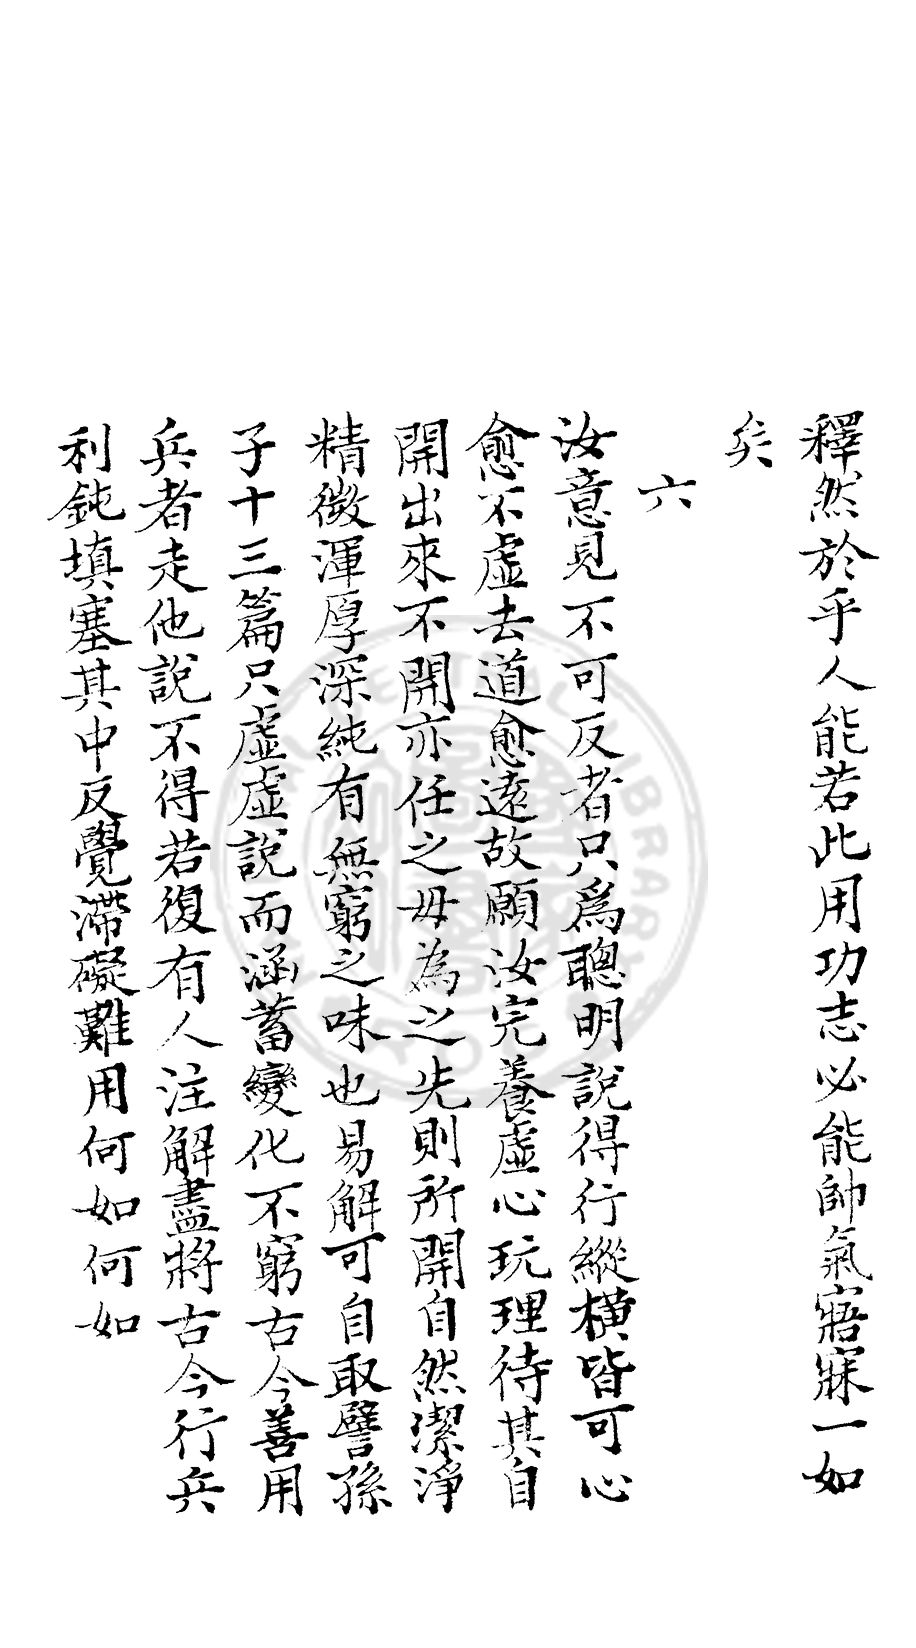 釋然於乎人能若此用功志必能帥氣寤寐一如
矣
六
汝意見不可反者只爲聰明說得行縱橫皆可心
愈不虛去道愈遠故願汝完養虛心玩理待其自
開出來不開亦任之毋為之先則所開自然潔淨
精微渾厚深純有無窮之味也易解可自取譬孫
子十三篇只虛虛說而涵蓄變化不窮古今善用
兵者走他說不得若復有人注解盡將古今行兵
利鈍填塞其中反覺滯礙難用何如何如